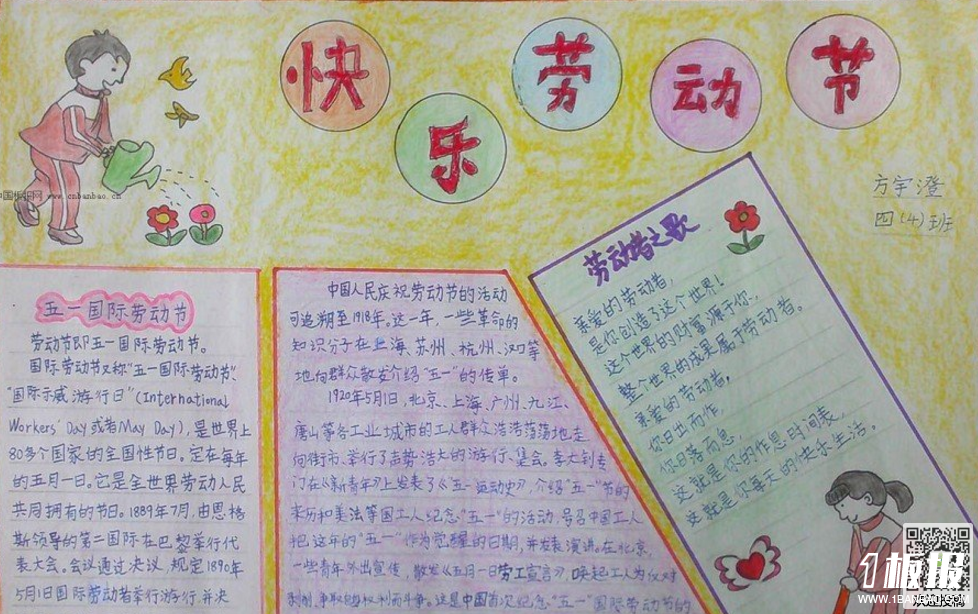 快乐劳动节
方宇澄
四(4)班
www.cnbanbao.cn
五一国际劳动节
劳动节即五一国际劳动节。
国际劳动节又称"五一国际劳动节",
"国际示威游行日"(International
Workers' Day或者May Day),是世界上
80多个国家的全国性节日。定在每年
的五月一日。它是全世界劳动人民
共同拥有的节日。1889年7月,由恩格
斯领导的第二国际在巴黎举行代
表大会。会议通过决议,规定1890年
5月1日国际劳动者举行游行,并决
中国人民庆祝劳动节的活动
可追溯至1918年。这一年,一些革命的
知识分子在上海、苏州、杭州、汉口等
地向群众散发介绍"五一"的传单。
1920年5月1日,北京、上海、广州、九江、
唐山等各工业城市的工人群众浩浩荡荡地走
向街市、举行了声势浩大的游行、集会。李大钊专
门在《新青年》上发表了《五一运动史》,介绍"五一"节的
来历和美法等国工人纪念"五一"的活动,号召中国工人
把这年的"五一"作为觉醒的日期,并发表演讲。在北京,
一些青年外出宣传,散发《五月一日劳工宣言》,唤起工人为反对
剥削、争取自身权利而斗争。这是中国首次纪念"五一"国际劳动节的
劳动者之歌
亲爱的劳动者,
是你创造了这个世界!
这个世界的财富源于你,
整个世界的成果属于劳动者。
亲爱的劳动者,
你日出而作,
你日落而息,
这就是你的作息时间表,
这就是你每天的快乐生活。
1板报
WWW.1BANBAO.COM